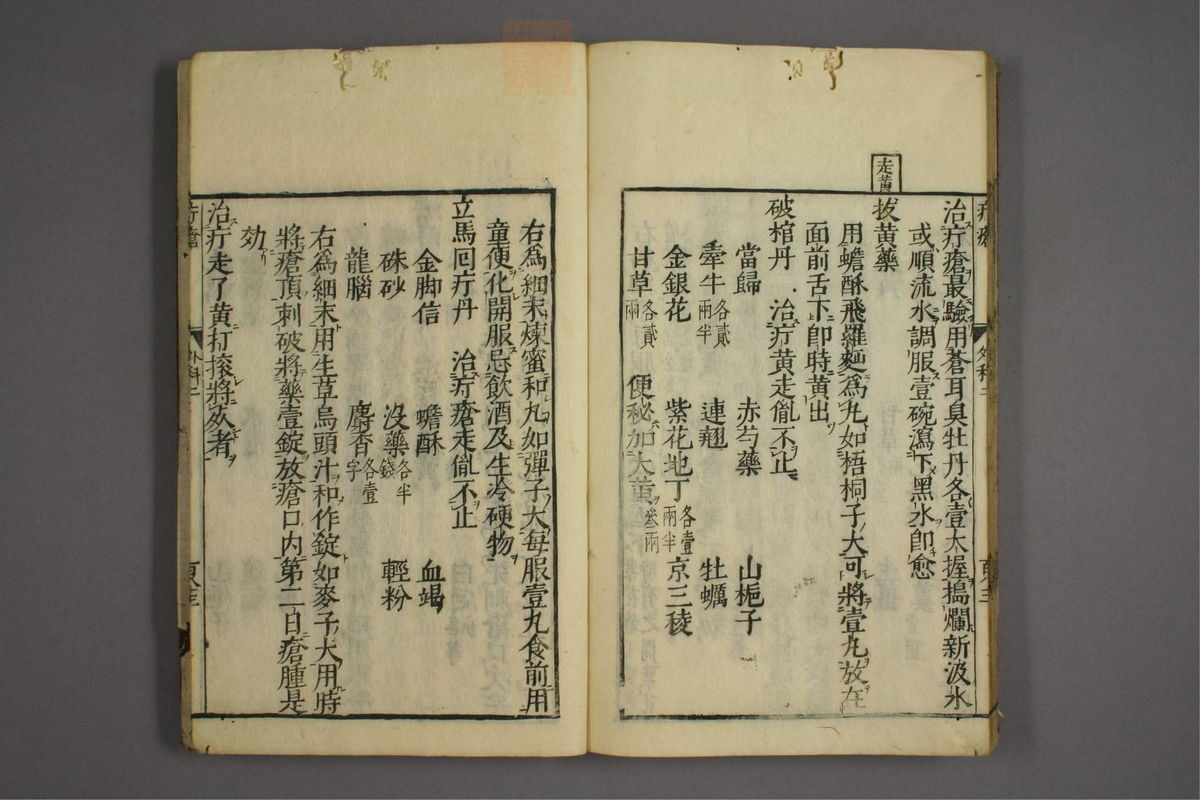 走黃
治疔瘡最驗用蒼耳臭牡丹各壹大握搗爛新汲水
或順流水調服壹碗瀉下黑水卽愈
拔黃藥
用蟾酥飛羅麵爲丸如梧桐子大可將壹丸放在
面前舌下卽時黃出
破棺丹 治疔黃走胤不止
當歸 赤芍藥 山梔子
牽牛各貳兩半 連翹 牡蠣
金銀花 紫花地丁各壹兩半 京三稜
甘草各貳兩 便秘加大黃叄兩
右爲細末煉蜜和丸如彈子大每服壹丸食前用
童便化開服忌飲酒及生冷硬物
立馬回疔丹 治疔瘡走胤不止
金脚信 蟾酥 血竭
硃砂 沒藥各半錢 輕粉
龍腦 麝香各壹字
右爲細末用生草烏頭汁和作錠如麥子大用時
將瘡頂刺破將藥壹錠放瘡口內第二日瘡腫是
効
治疔走了黃打滾將死者